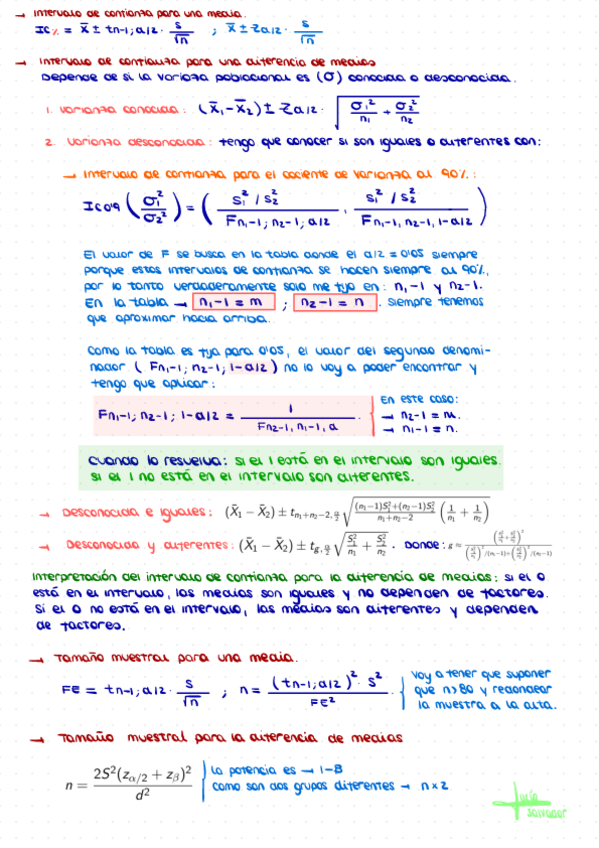 → Intervalo de confianza para una media.
IC% = x̄ ± tn-1;α/2 · s/√n ; x̄ ± Zα/2 · s/√n
→ Intervalo de confianza para una diferencia de medias
Depende de si la varianza poblacional es (σ) conocida o desconocida.
1. Varianza conocida: (x̄₁-x̄₂) ± Zα/2 · √(σ₁²/n₁ + σ₂²/n₂)
2. Varianza desconocida: tengo que conocer si son iguales o diferentes con:
→ Intervalo de confianza para el cociente de varianza al 90%:
IC0'9 (σ₁²/σ₂²) = (S₁²/S₂² / Fn₁-1; n₂-1; α/2 , S₁²/S₂² / Fn₁-1, n₂-1, 1-α/2)
El valor de F se busca en la tabla donde el α/2 = 0'05 siempre
porque estos intervalos de confianza se hacen siempre al 90%,
por lo tanto verdaderamente solo me fijo en: n₁-1 y n₂-1.
En la tabla → n₁-1 = m ; n₂-1 = n . siempre tenemos
que aproximar hacia arriba.
Como la tabla es fija para 0'05, el valor del segundo denomi-
nador ( Fn₁-1; n₂-1; 1-α/2 ) no lo voy a poder encontrar y
tengo que aplicar:
Fn₁-1; n₂-1; 1-α/2 = 1 / Fn₂-1, n₁-1, α .
En este caso:
→ n₂-1 = m.
→ n₁-1 = n.
Cuando lo resuelva: si el 1 está en el intervalo son iguales.
si el 1 no está en el intervalo son diferentes.
→ Desconocida e iguales: (X̄₁ - X̄₂) ± t n₁+n₂-2, α/2 √((n₁-1)S₁²+(n₂-1)S₂² / n₁+n₂-2 (1/n₁ + 1/n₂))
→ Desconocida y diferentes: (X̄₁ - X̄₂) ± t g, α/2 √(S₁²/n₁ + S₂²/n₂) . Donde: g ≈ (S₁²/n₁ + S₂²/n₂)² / ((S₁²/n₁)²/(n₁-1)+(S₂²/n₂)²/(n₂-1))
Interpretación del intervalo de confianza para la diferencia de medias: si el 0
está en el intervalo, las medias son iguales y no dependen de factores.
Si el 0 no está en el intervalo, las medias son diferentes y dependen
de factores.
→ Tamaño muestral para una media.
FE = tn-1; α/2 · s/√n ; n = (tn-1; α/2)² · s² / FE²
Voy a tener que suponer
que n>80 y redondear
la muestra a la alta.
→ Tamaño muestral para la diferencia de medias
n = 2S²(zα/2 + zβ)² / d²
La potencia es → 1-B
como son dos grupos diferentes → n×2
Lucía
Salvador